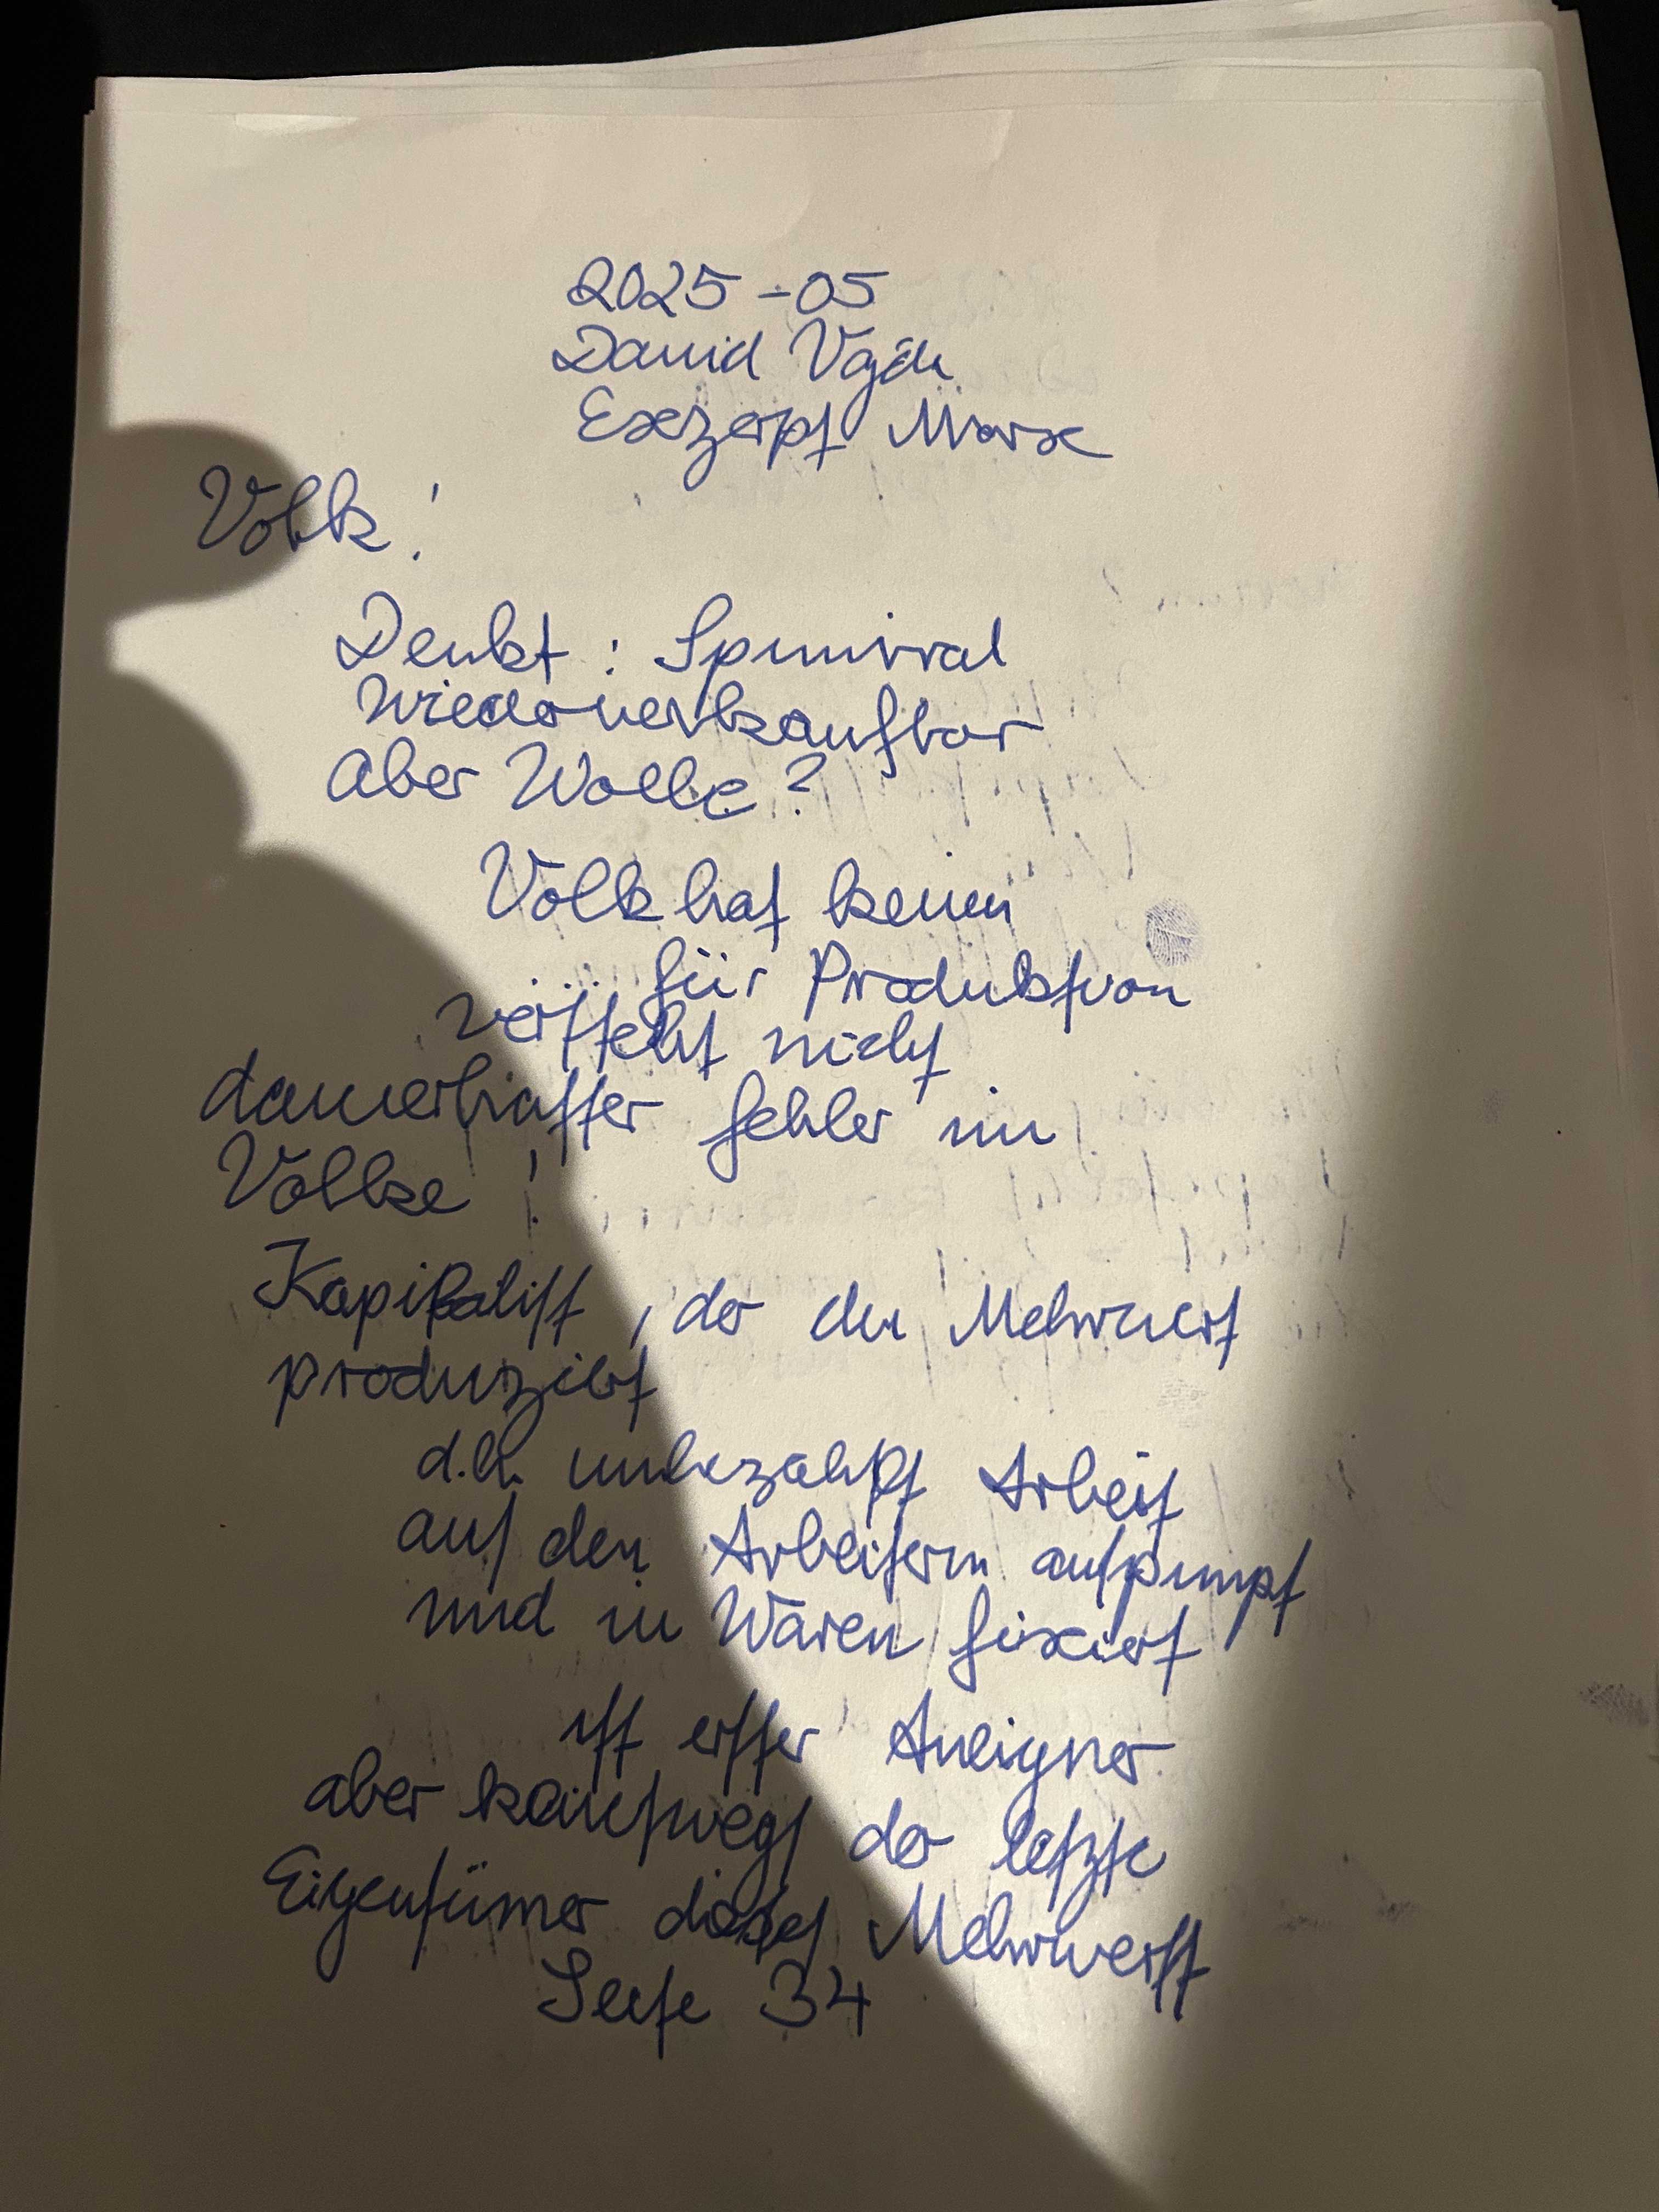 2025-05
David
Exzerpt Marx
Volk!
Denkt: Spinnrad
wiederverkaufbar
Aber Wolle?
Volk hat keinen
für Produktion
versteht nicht
dauerhafter Fehler im
Volke!
Kapitalist, der den Mehrwert
produziert
d.h. unbezahlt Arbeit
aus den Arbeitern auspumpt
und in Waren fixiert
ist erster Aneigner
aber keineswegs der letzte
Eigentümer dieses Mehrwerts
Seite 34